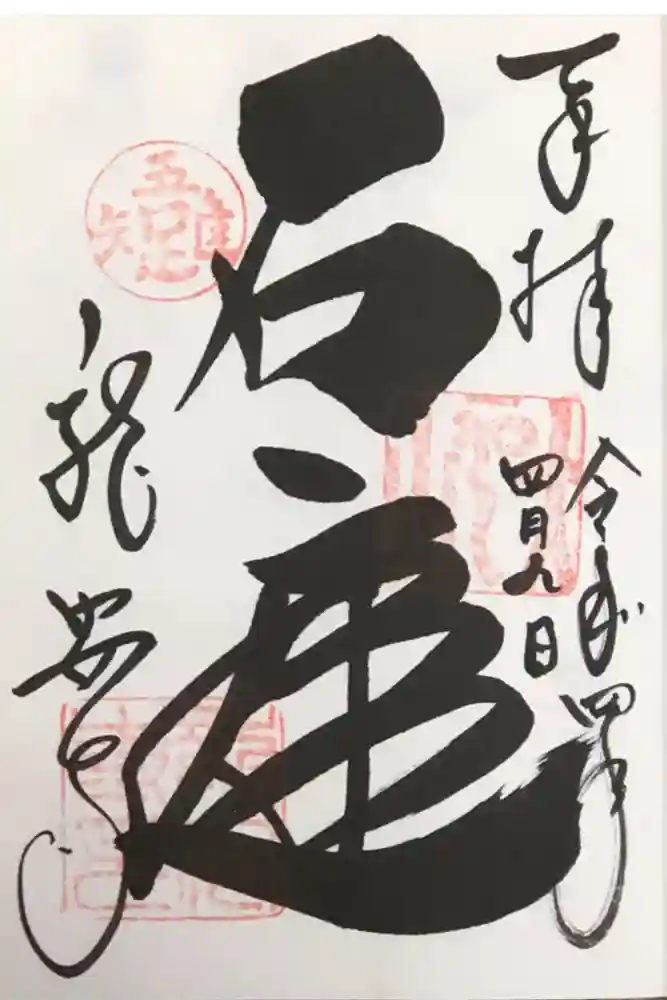 奉拝
令和四年
四月九日
石庭
龍安寺
吾唯足知